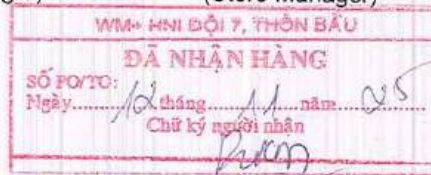 (Store Manager)
WM+ HNI ĐỘI 7, THÔN BẦU
ĐÃ NHẬN HÀNG
SỐ PO/TO:
Ngày......12 tháng......11......năm......25
Chữ ký người nhận